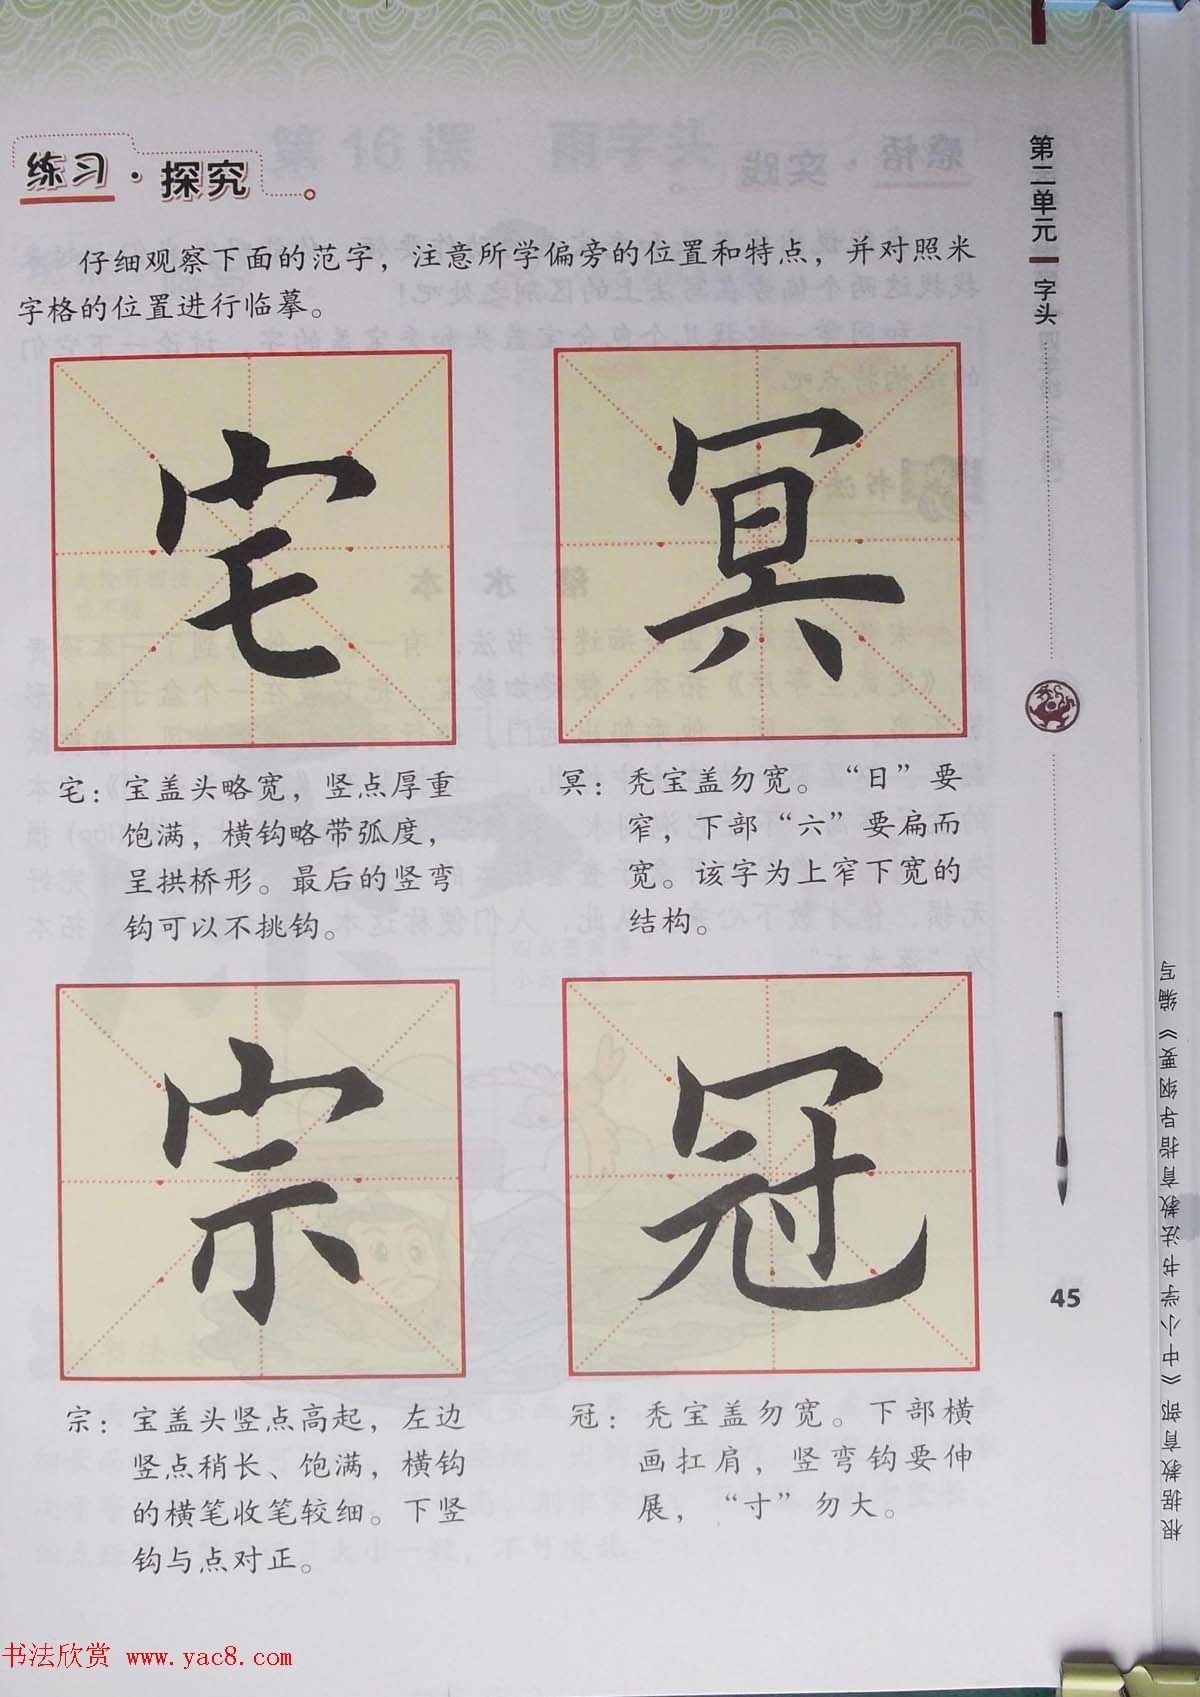 练习·探究
仔细观察下面的范字，注意所学偏旁的位置和特点，并对照米
字格的位置进行临摹。
宅
宅：宝盖头略宽，竖点厚重
饱满，横钩略带弧度，
呈拱桥形。最后的竖弯
钩可以不挑钩。
冥
冥：秃宝盖勿宽。“日”要
窄，下部“六”要扁而
宽。该字为上窄下宽的
结构。
宗
宗：宝盖头竖点高起，左边
竖点稍长、饱满，横钩
的横笔收笔较细。下竖
钩与点对正。
冠
冠：秃宝盖勿宽。下部横
画扛肩，竖弯钩要伸
展，“寸”勿大。
第二单元 字头
45
根据教育部《中小学书法教育指导纲要》编写
书法欣赏 www.yac8.com